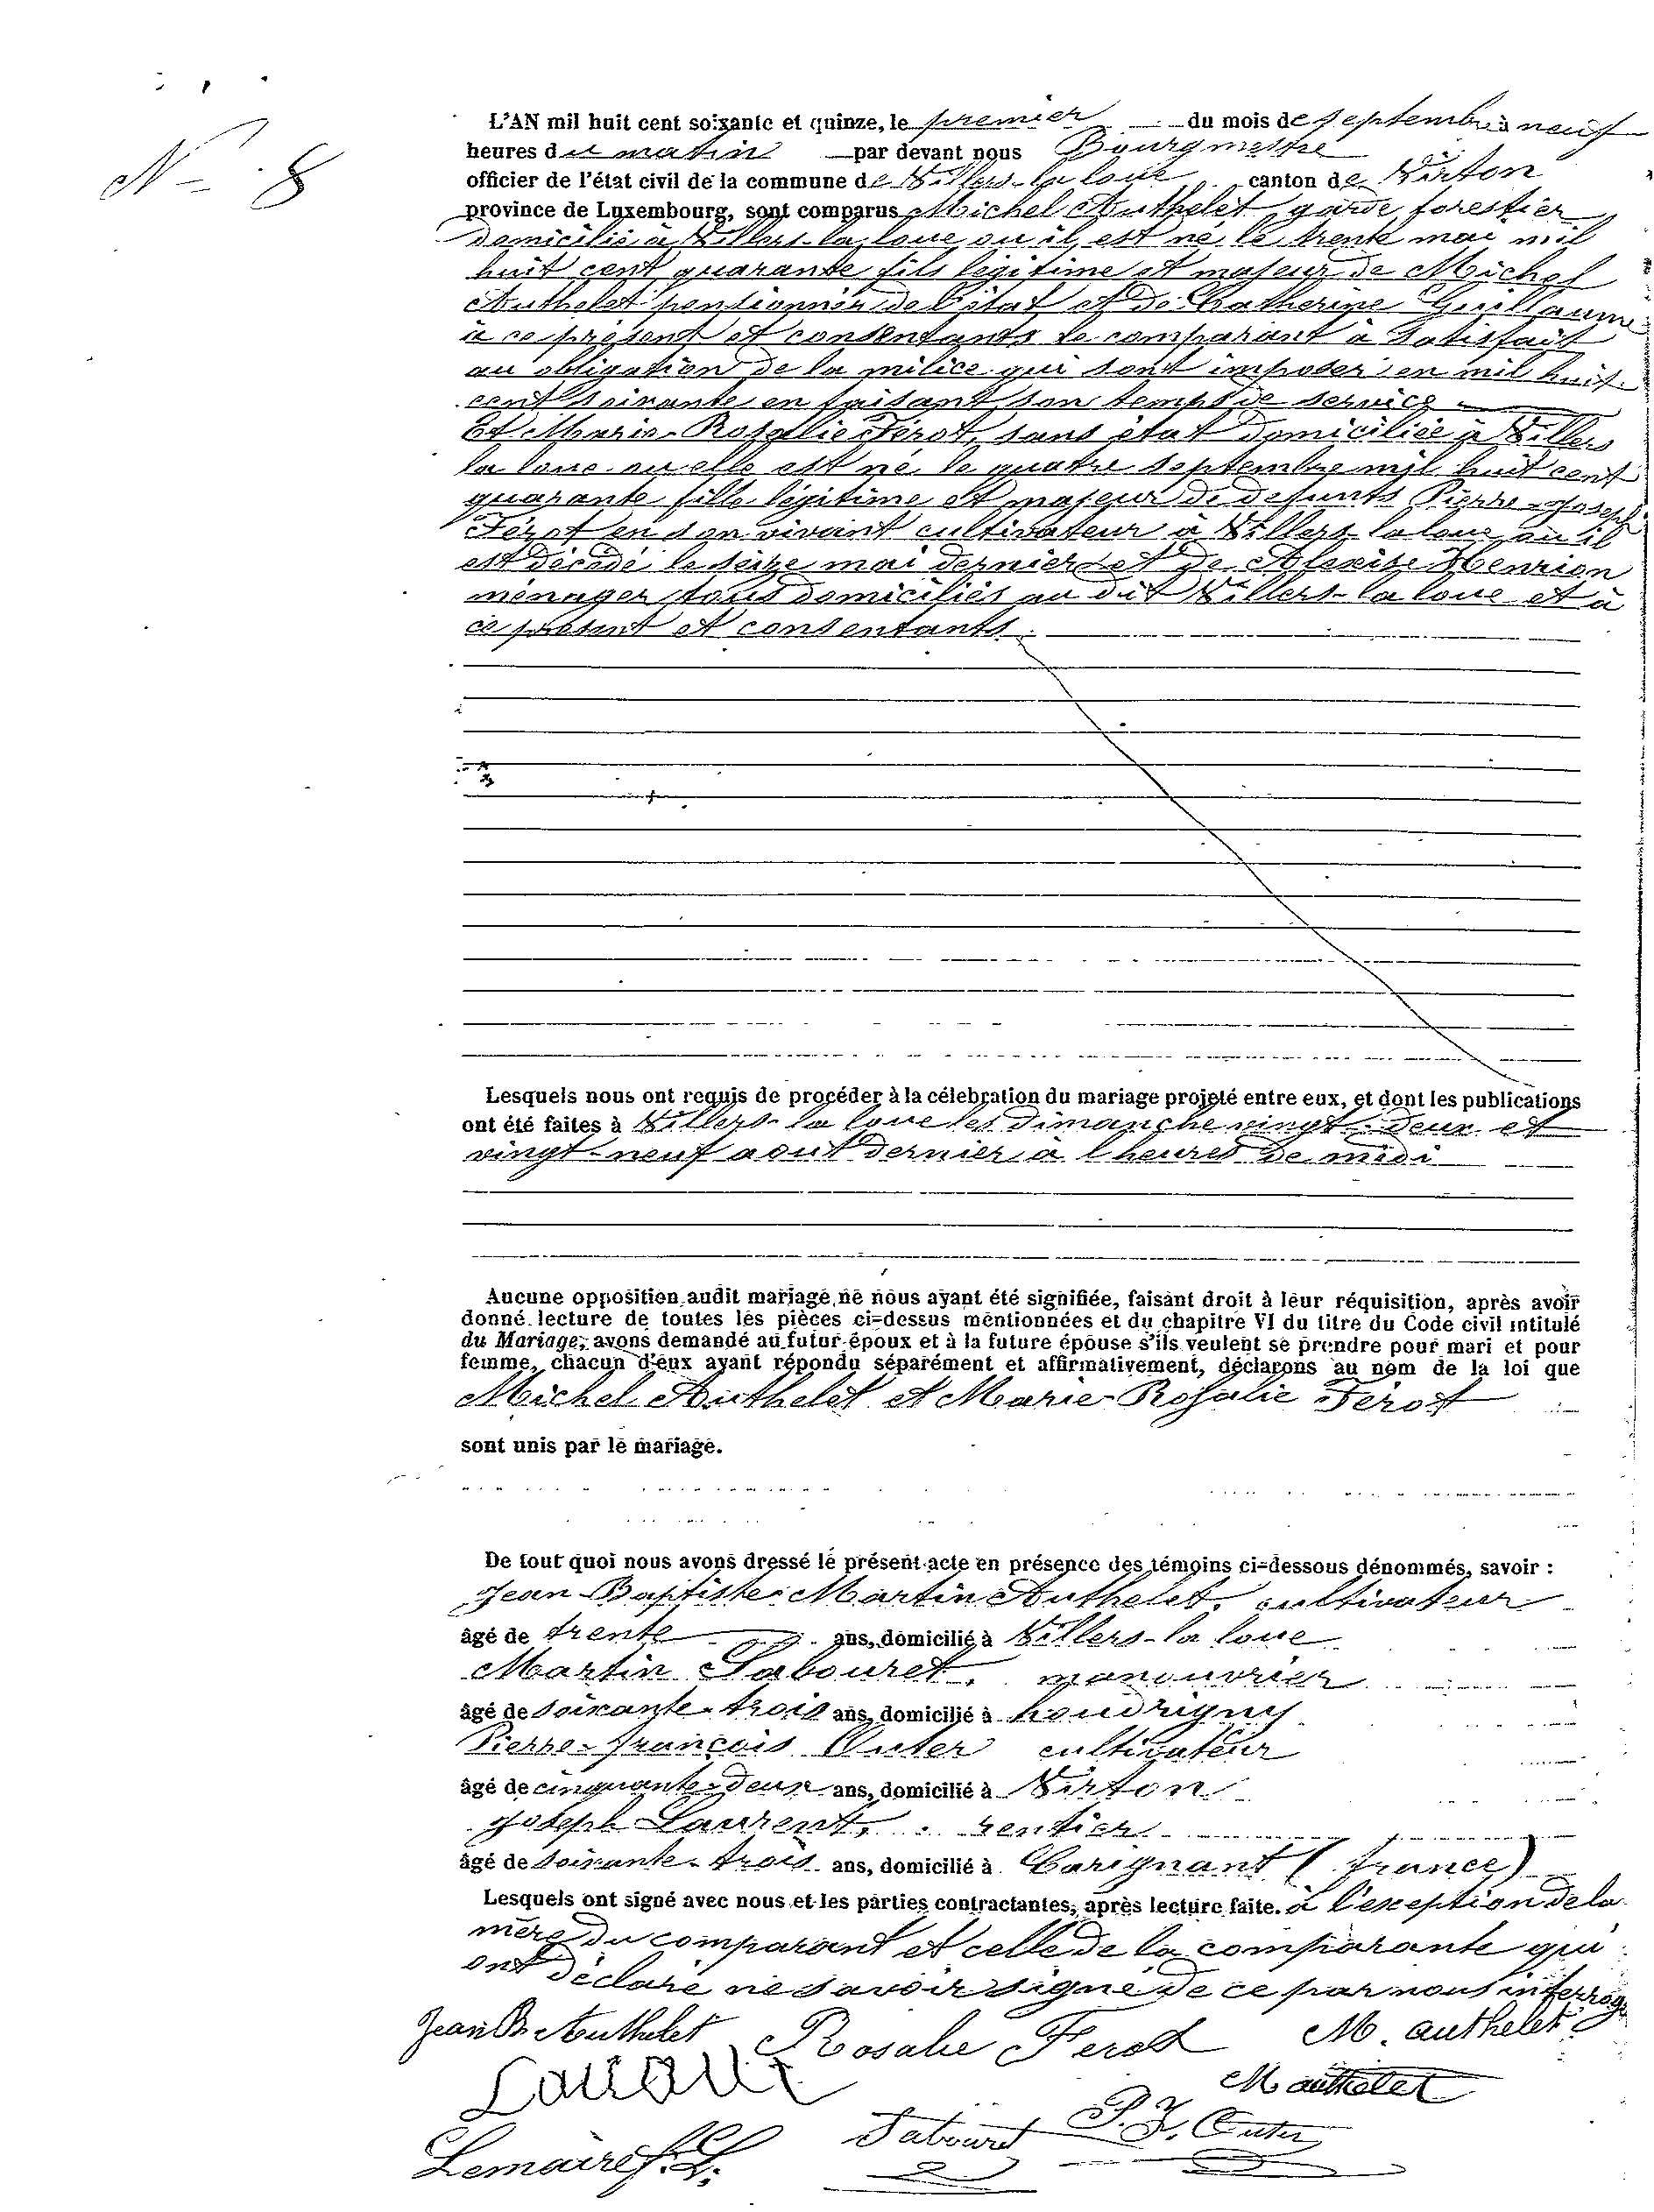 N° 8
L'AN mil huit cent soixante et quinze, le premier du mois de septembre à neuf
heures du matin par devant nous Bourgmestre
officier de l'état civil de la commune de Villers-la loue canton de Virton
province de Luxembourg, sont comparus Michel Authelet garde forestier
domicilié à Villers-la loue ou il est né le trente mai mil
huit cent quarante fils légitime et majeur de Michel
Authelet pensionnér de l'état et de Catherine Guillaume
à ce présent et consentants le comparant à satisfait
au obligation de la milice qui sont imposer en mil huit
cent soixante en faisant son temps de service
Et Marie-Rosalie Férot, sans état domiciliée à Villers
la loue ou elle est né le quatre septembre mil huit cent
quarante fille légitime et majeur de defunts Pierre-Joseph
Férot en son vivant cultivateur à Villers-la loue ou il
est décédé le seize mai dernier et de Alexise Henrion
ménager tous domiciliés au dit Villers-la loue et à
ce présent et consentants.
Lesquels nous ont requis de procéder à la célebration du mariage projeté entre eux, et dont les publications
ont été faites à Villers-la loue les dimanche vingt-deux et
vingt-neuf aout dernier à l heures de midi
Aucune opposition audit mariage ne nous ayant été signifiée, faisant droit à leur réquisition, après avoir
donné lecture de toutes les pièces ci-dessus mentionnées et du chapitre VI du titre du Code civil intitulé
du Mariage, avons demandé au futur époux et à la future épouse s'ils veulent se prendre pour mari et pour
femme, chacun d'eux ayant répondu séparément et affirmativement, déclarons au nom de la loi que
Michel Authelet et Marie-Rosalie Férot
sont unis par le mariage.
De tout quoi nous avons dressé le présent acte en présence des témoins ci-dessous dénommés, savoir :
Jean-Baptiste Martin Authelet, cultivateur
âgé de trente ans, domicilié à Villers-la loue
Martin Sabouret, manouvrier
âgé de soixante-trois ans, domicilié à houdrigny
Pierre-françois Outer cultivateur
âgé de cinquante-deux ans, domicilié à Virton
Joseph Laurent, rentier
âgé de soixante-trois ans, domicilié à Carignant (france)
Lesquels ont signé avec nous et les parties contractantes, après lecture faite. à l'exception de la
mère du comparant et celle de la comparante qui
ont déclaré ne savoir signé de ce par nous interrogé
Jean B. Authelet Rosalie Ferot M. authelet
M authelet
Sabouret P. F. Outer
Lemaire